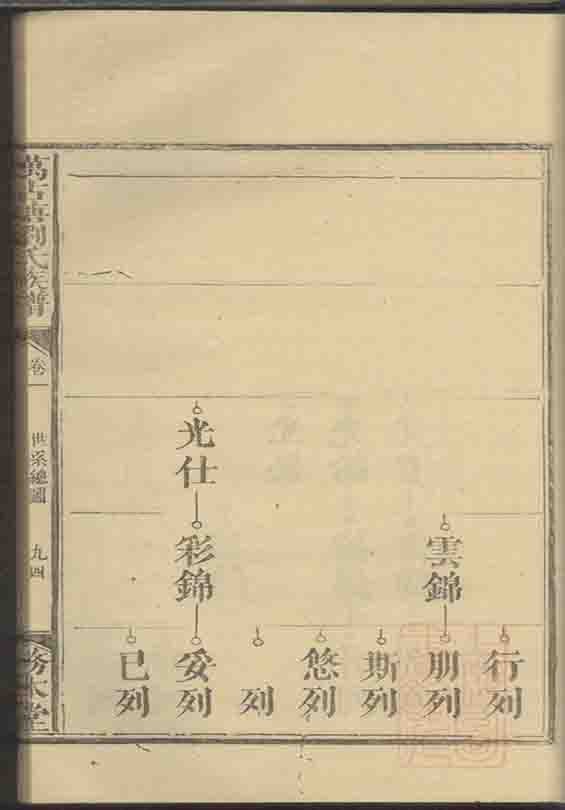 行列
雲錦
朋列
斯列
悠列
列
光仕
彩錦
妥列
已列
萬古塘劉氏族譜
卷一
世系總圖
九四
務本堂